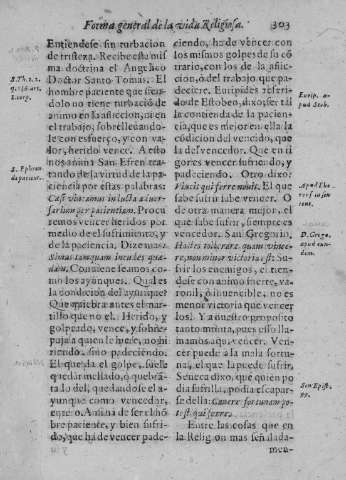 Forma general de la vida Religiosa. 303
Entiendese sin turbacion
de tristeza. Recibe esta mis
ma doctrina el Angelico
Doctor Santo Tomàs. El
hombre paciente que sien
dolo no tiene turbació de
animo en la aflicion, ni en
el trabajo, sobrellevando-
le con esfuerço, y con va-
lor, hereda vence. A esto
nos anima San Efren tra-
tando de la virtud de la pa-
ciencia por estas palabras:
per patientiam. Procu
remos vencer heridos por
medio de el sufrimiento, y
de la paciencia, Dize mas:
Simus tamquam incudes
Conviene seamos co-
mo los ayunques. Qual es
la condicion del ayunque?
Que quebranta antes el mar-
tillo que no el. Herido, y
golpeado, vence, y sobre-
puja à quien le hiere, no hi
riendo, sino padeciendo.
El que da el golpe, suele
quedar mellado, ò quebrã-
ta lo del, quedandose el a-
yunque como vencedor,
entero. Anima de ser el hõ
bre paciente, y bien sufri-
do, que ha de vencer pade-
ciendo, ha de vencer con
los mismos golpes de su cõ
trario, con los de la aflic-
cion, ò del trabajo que pa-
dece. Euripides referi-
do de Estobeo, dixo, ser tal
la contienda de la pacien-
cia, que es mejor en ella la
cõdicion del vencido, que
la del vencedor. Que en ri
gores vencer sufriendo, y
padeciendo. Otro dixo:
Vincit qui ferre novit. El que
sabe sufrir sabe vencer. O
de otra manera mejor, el
que sabe sufrir, siempre es
vencedor. San Gregorio,
tolerare, quam vince-
re, non minor victoria est: Su-
frir los enemigos, el rien-
dese con animo fuerte, va-
ronil, è invencible, no es
menor victoria que vencer
los! Y a nuestro proposito
tanto monta, pues esso lla-
mamos aqui vencer. Ven-
cer puede à la mala fortu-
na, el que la puede sufrir.
Seneca dixo, que quien po
dia sufrilla, podia escapar-
se della: fortunam po-
test, qui ferre.
Entre las cosas que en
la Religion mas señalada-
men-
S. Th. 2. 2.
S. Ephren
de patient.
Eurip. a-
pud Stob.
D. Greg.
apud eun-
dem.
Sen. Epist.